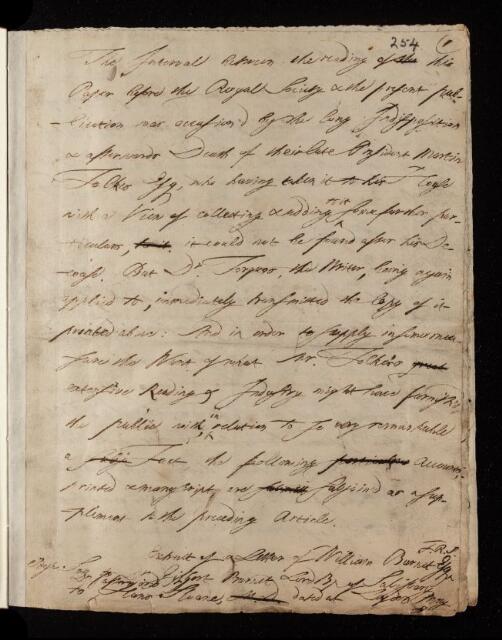 254
The Interval between the reading of the this
Paper before the Royal Society & the present pub-
-lication was occasion'd by the long Indisposition
& afterwards Death of their late President Martin
Folkes Esq; who having taken it to his
with a View of collecting & adding to it some further par-
ticulars, it could not be found after his De-
cease. But Dr. the Writer, being again
applied to, immediately transmitted the Copy of it
printed above: And in order to supply in some mea-
sure the Want of what Mr. Folkes's great
extensive Reading & Industry might have furnish'd
the public with in relation to so very remarkable
a Fact, the following particular Accounts
printed & manuscript are subjoin'd as a sup-
plement to the preceding Article.
Extract of a Letter of William Burnet Esq; F.R.S.
Burnet Lord Bp. of Salisbury
to Hans Sloane, dated at